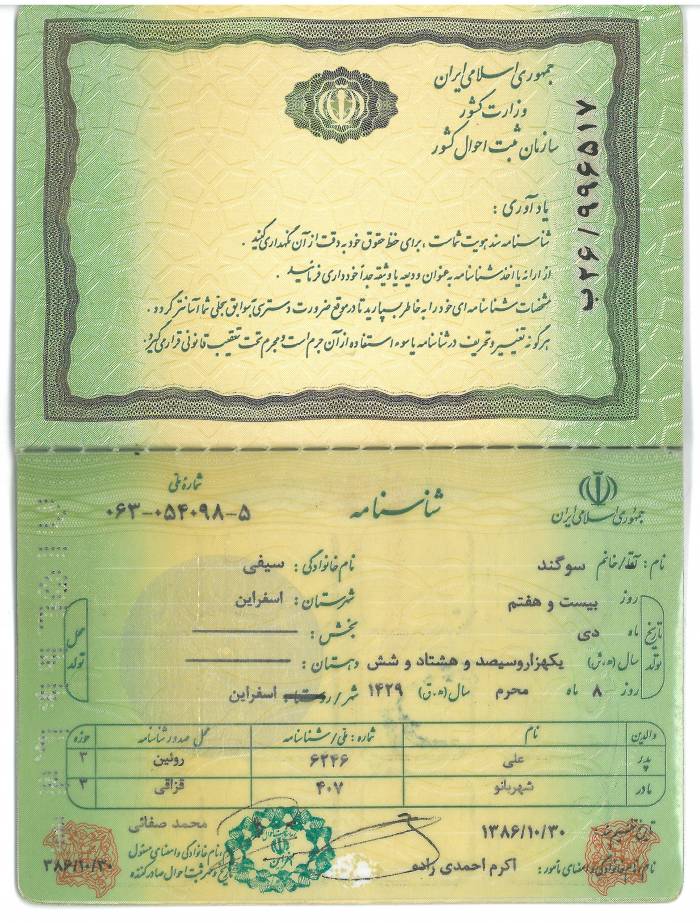 جمهوری اسلامی ایران
وزارت کشور
سازمان ثبت احوال کشور
ب۲۶/۹۹۶۵۱۷
یادآوری :
شناسنامه سند هویت شماست ، برای حفظ حقوق خود به دقت از آن نگهداری کنید .
از ارائه یا اخذ شناسنامه به عنوان ودیعه یا وثیقه جداً خودداری فرمائید .
مشخصات شناسنامه ای خود را به خاطر بسپارید تا در موقع ضرورت دسترسی به سوابق سجلی شما آسانتر گردد .
هرگونه تغییر و تحریف در شناسنامه یا سوء استفاده از آن جرم است و مجرم تحت تعقیب قانونی قرار می گیرد .
جمهوری اسلامی ایران
شناسنامه
شماره ملی
۰۶۳-۰۵۴۰۹۸-۵
نام : آقا/خانم سوگند نام خانوادگی : سیفی
تاریخ تولد
روز بیست و هفتم
ماه دی
سال (ه.ش) یکهزاروسیصد و هشتاد و شش
روز ۸ ماه محرم سال (ه.ق) ۱۴۲۹
محل تولد
شهرستان : اسفراین
بخش :
دهستان :
شهر/ اسفراین
والدین نام شماره : ملی/شناسنامه محل صدور شناسنامه حوزه
پدر علی ۶۲۴۶ روئین ۳
مادر شهربانو ۴۰۷ قزاقی ۳
۱۳۸۶/۱۰/۳۰
اکرم احمدی زاده
محمد صفائی
نام خانوادگی و امضای مسئول
ثبت احوال صادر کننده
۳۸۶/۱۰/۳۰